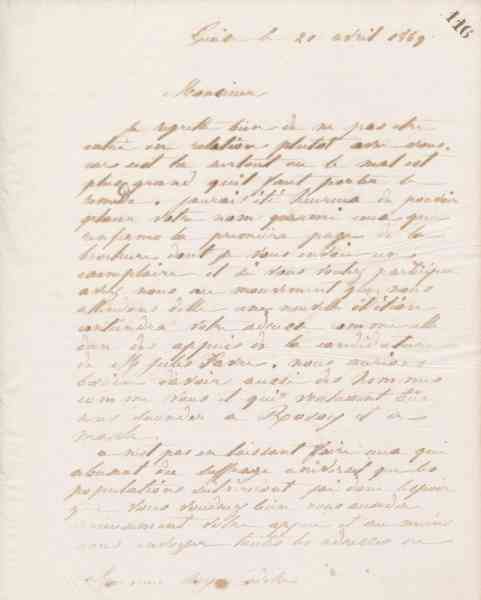 116
Guise le 20 avril 1869
Monsieur
Je regrette bien de ne pas être
entré en relation plutot avec vous.
car c'est la surtout ou le mal est
plus grand qu'il faut porter le
remède. J'aurais été heureux de pouvoir
placer votre nom parmi ceux que
renferme la première page de la
brochure dont je vous envoie un
exemplaire et si vous voulez participer
avec nous au mouvement que nous
attendons d'elle une nouvelle édition
contiendra votre adresse comme celle
des appuis de la candidature
de M Jules Favre. nous aurions
besoin d'avoir aussi des hommes
comme vous et qui voulussent bien
nous seconder a Rozoy et a
Marle.
ce n'est pas en laissant faire ceux qui
abusent du suffrage universel que les
populations j'ai donc l'espoir
que vous voudrez bien nous accorder
votre appui et au moins
nous envoyer toutes les adresses